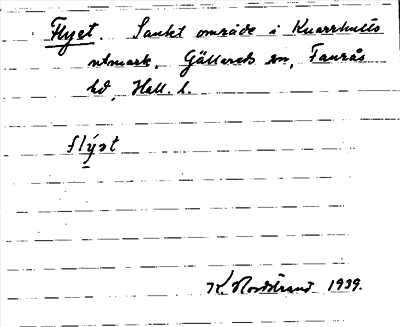 Flyet. Sankt område i Knarrhults
utmark, Gällareds sn, Faurås
hd, Hall. l.
flýət
K. Nordstrand 1939.